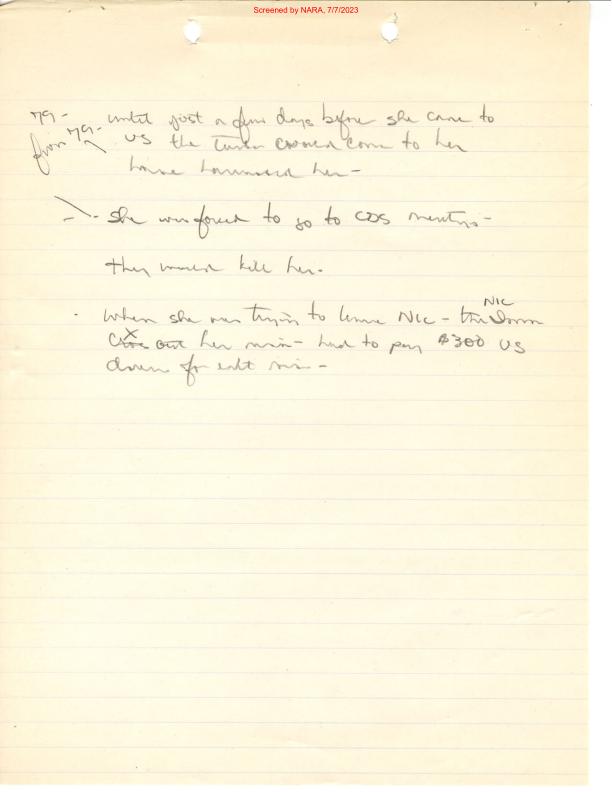 Screened by NARA, 7/7/2023
79 -
from 79 - until just a few days before she came to
US the would come to her
house her -
- She was forced to go to CDS meetings -
they would kill her.
NIC
· When she was trying to leave NIC - the
X her visa - had to pay $300 US
for exit visa -